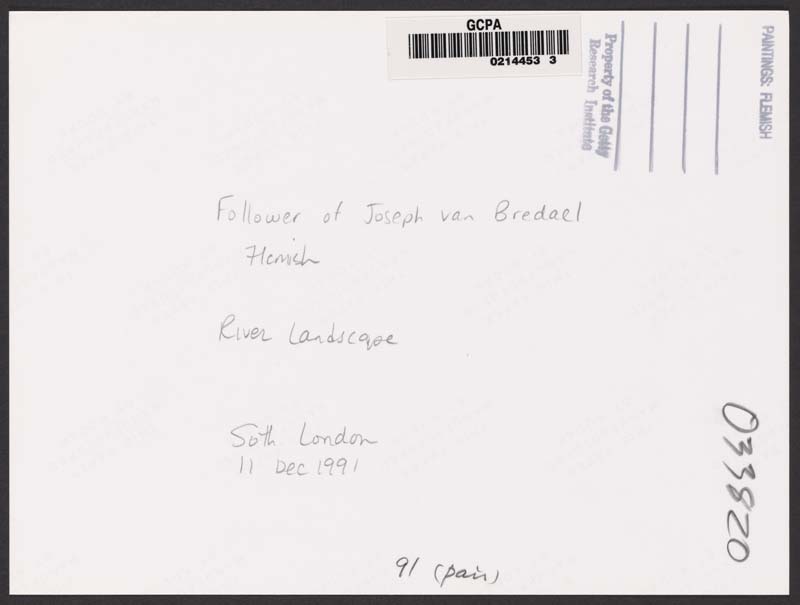 GCPA
0214453 3
Property of the Getty
Research Institute
PAINTINGS: FLEMISH
Follower of Joseph van Bredael
Flemish
River Landscape
Soth London
11 Dec 1991
033820
91 (pair)